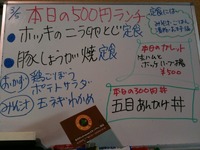 3/6 本日の500円ランチ
・ホッキのニラ玉とじ定食
・豚しょうが焼定食
おかず 鶏ごぼう
ポテトサラダ
みそ汁 玉ネギわかめ
定食には…
本日の
¥500
本日の300円丼
五目あんかけ丼